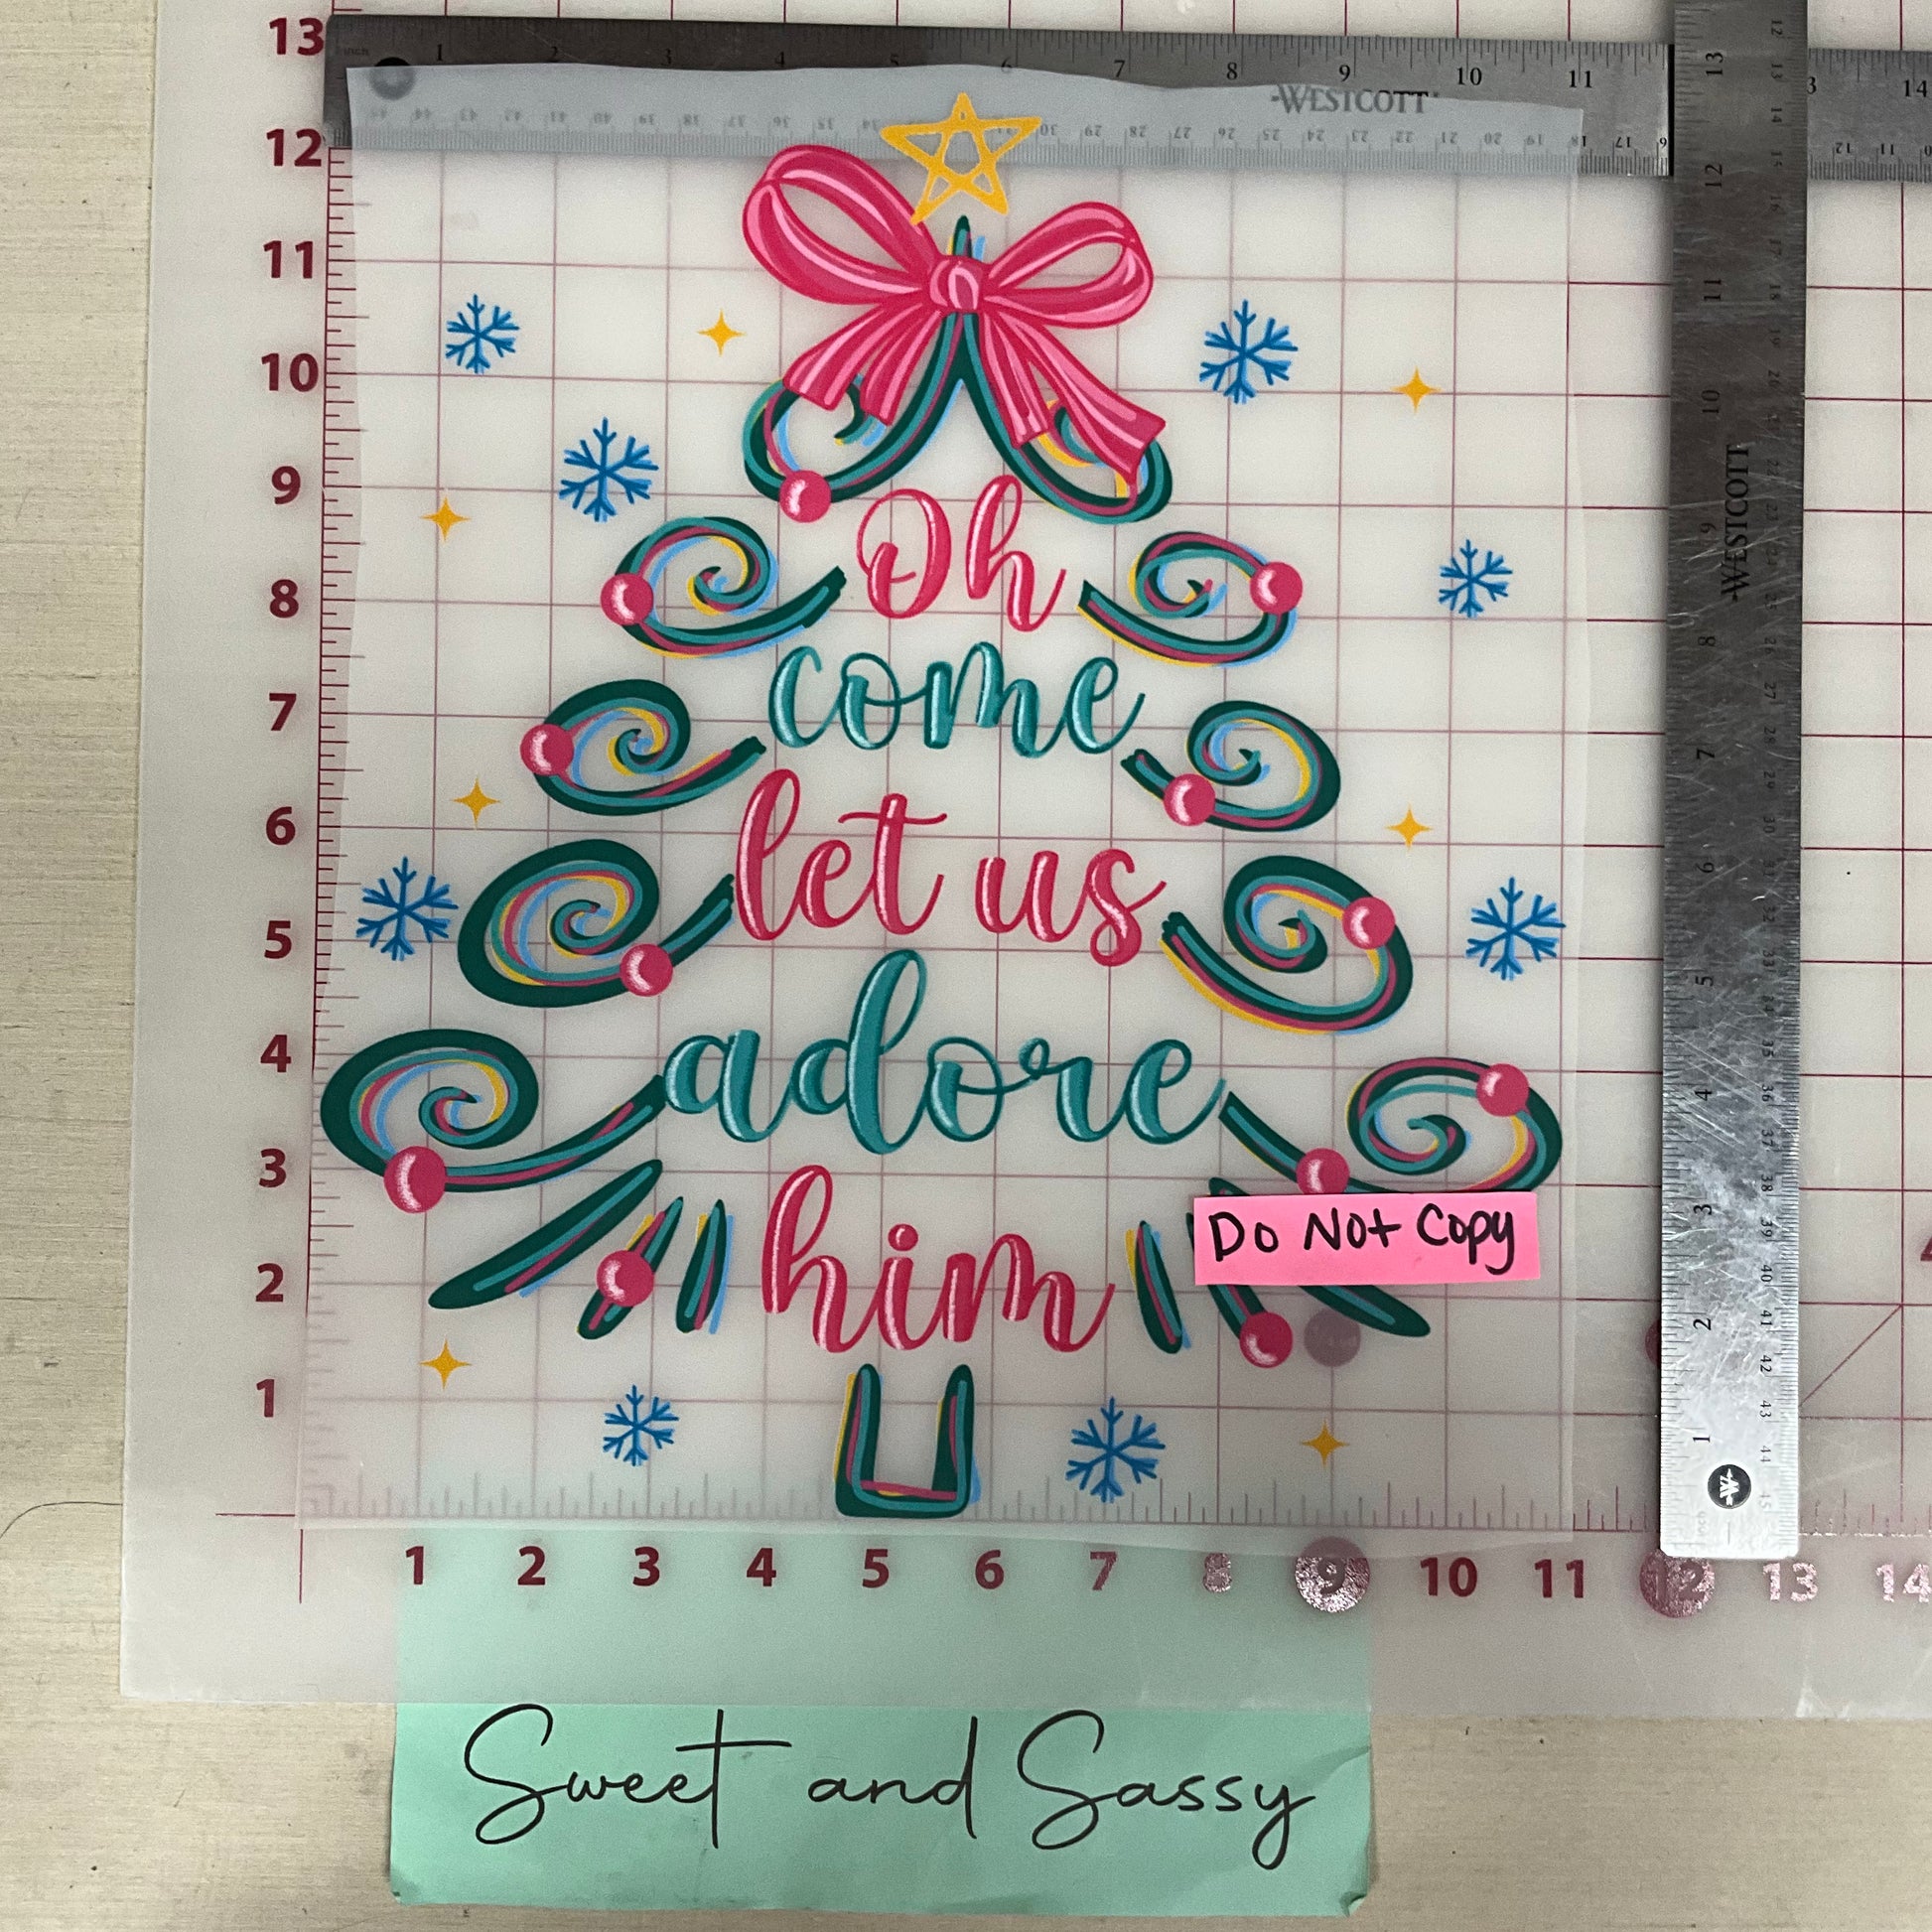 13
1 2 3 4 5 6 7 8 9 10 11
WESTCOTT
12
11
10
9
8
7
6
5
4
3
2
1
Oh
come
let us
adore
him
Do Not Copy
WESTCOTT
13
12
11
10
9
8
7
6
5
4
3
2
1
1 2 3 4 5 6 7 8 9 10 11 12 13 14
Sweet and Sassy